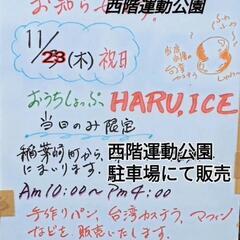 お知らせ 西階運動公園
11/23(木) 祝日
おうちしょっぷ HARU,ICE
当日のみ限定
稲葉崎町から、西階運動公園
にまいります。駐車場にて販売
Am10:00~Pm4:00
手作りパン、台湾カステラ、マフィン
などを販売いたします。